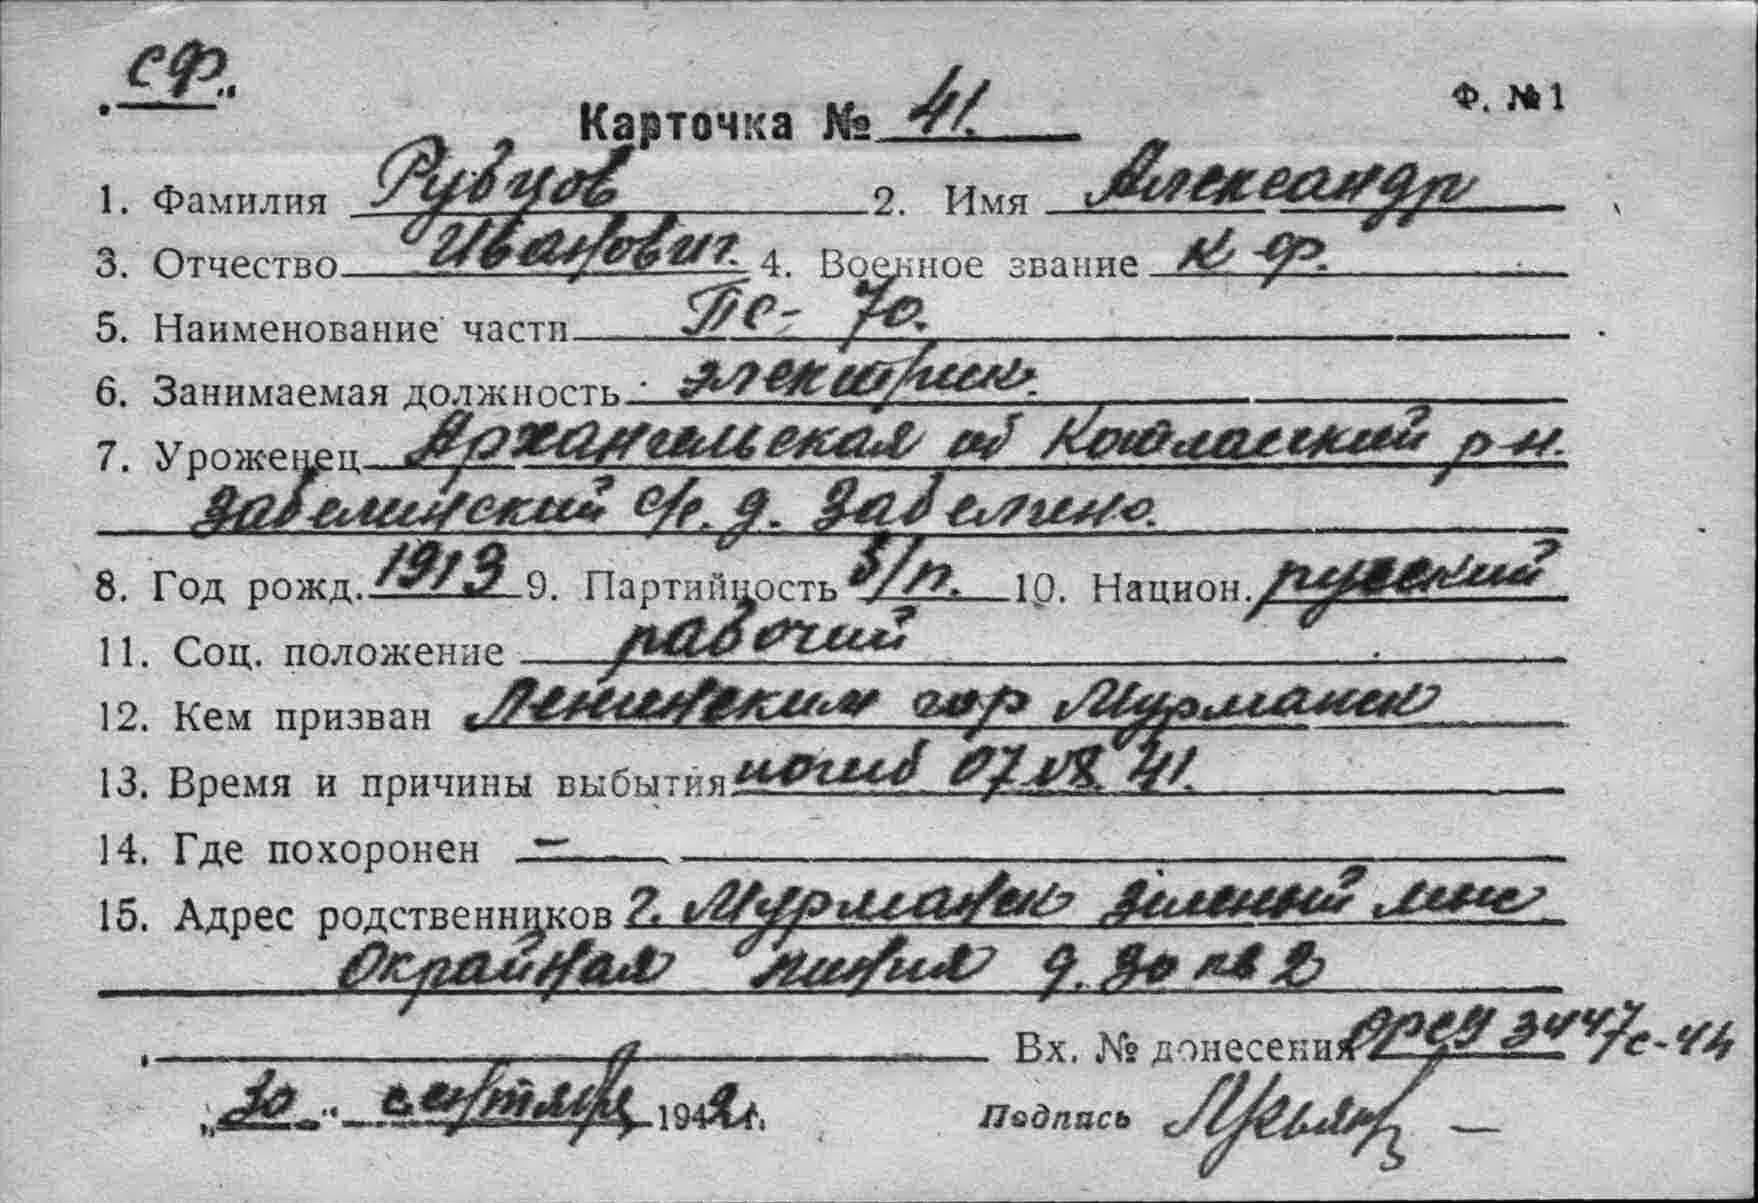 СФ.
Ф. № 1
Карточка № 41.
1. Фамилия Рубцов 2. Имя Александр
3. Отчество Иванович. 4. Военное звание к ф.
5. Наименование части ПС- 70.
6. Занимаемая должность электрик.
7. Уроженец Архангельская об Котласский р-н.
Забелинский с/с. д. Забелино.
8. Год рожд. 1913 9. Партийность б/п. 10. Национ. русский
11. Соц. положение рабочий
12. Кем призван Ленинским гор Мурманск
13. Время и причины выбытия погиб 07.08.41.
14. Где похоронен —
15. Адрес родственников г. Мурманск Зеленый мыс
Окрайная линия д. 30 кв 2
Вх. № донесения 3447с-44
„30" сентября 1942 г.
Подпись